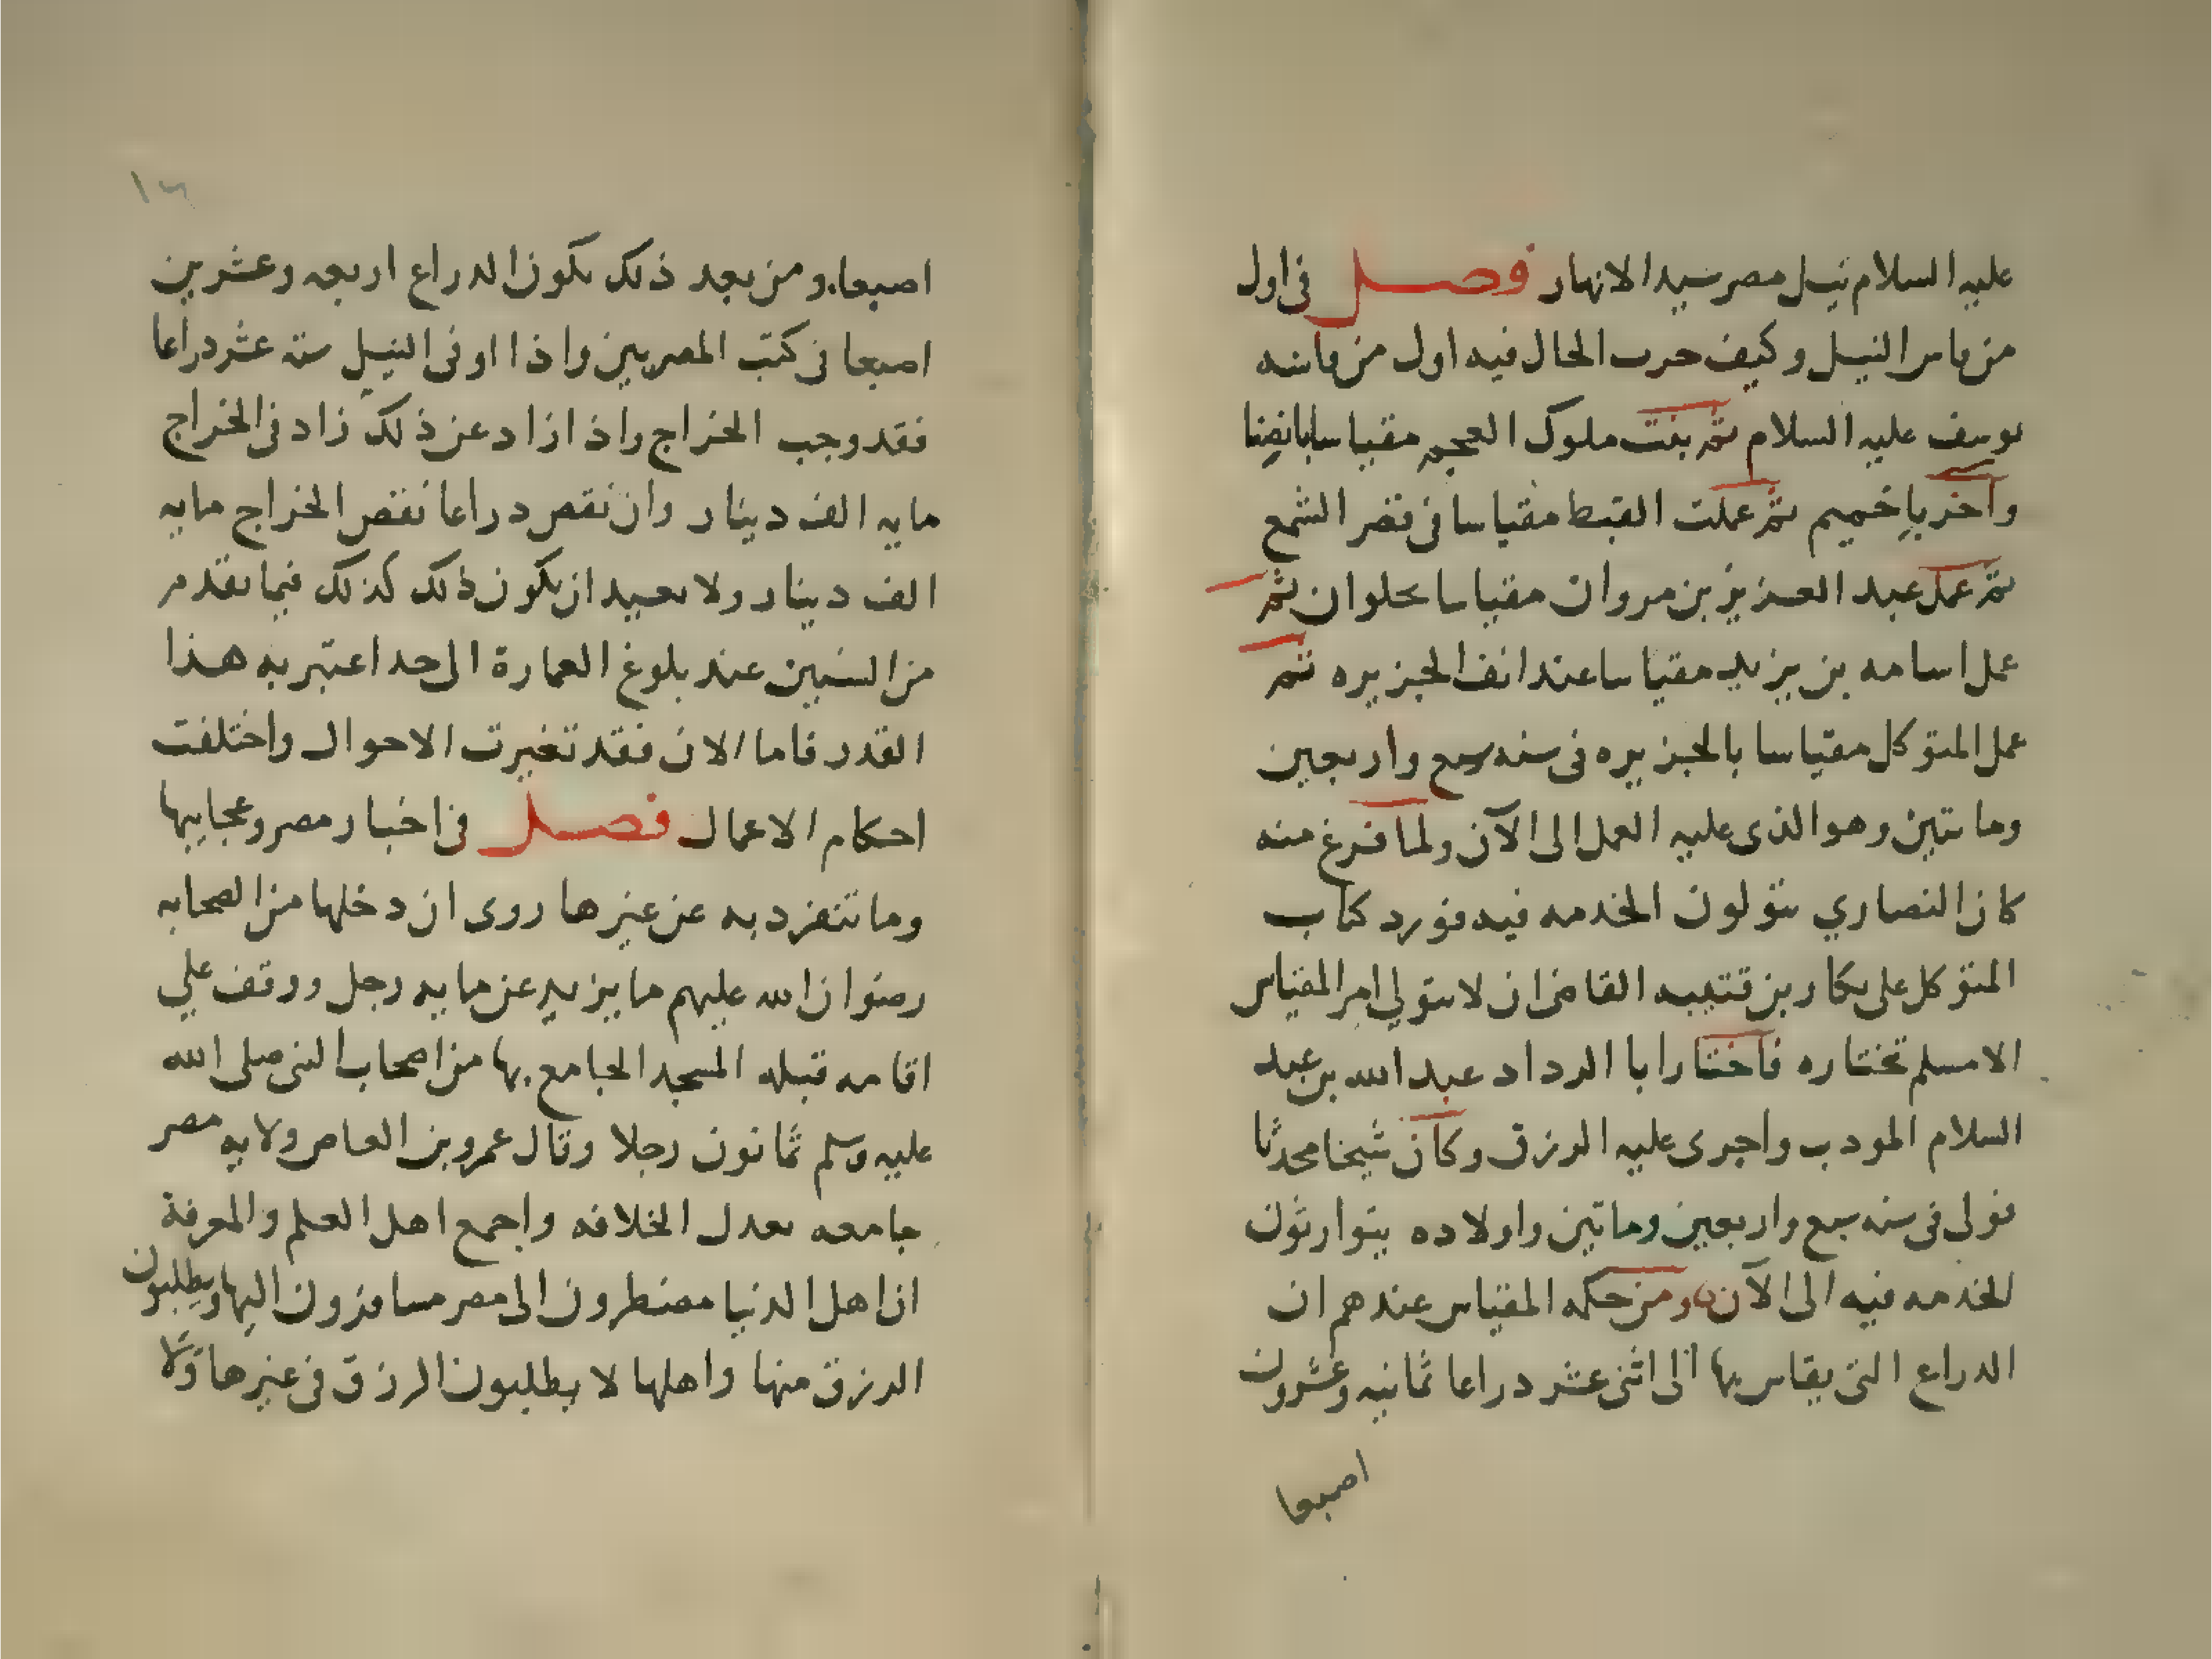 عليه السلام نيل مصر سيد الانهار فصل في اول
من قاس النيل وكيف جرت الحال فيه اول من قاسه
يوسف عليه السلام ثم بنت ملوك العجم مقياسا بانصنا
وآخر بإخميم ثم عملت القبط مقياسا في قصر الشمع
ثم عمل عبد العزيز بن مروان مقياسا بحلوان ثم
عمل اسامه بن يزيد مقياسا عند انف الجزيره ثم
عمل المتوكل مقياسا بالجزيره في سنه سبع واربعين
وماتين وهو الذي عليه العمل الى الآن ولما فرغ منه
كان النصاري يتولون الخدمه فيه فورد كتاب
المتوكل على بكار بن قتيبه القاضى ان لا يتولي امر المقياس
الا مسلم تختاره فاختار ابا الرداد عبد الله بن عبد
السلام المودب واجرى عليه الرزق وكان شيخا محدثا
فولى في سنه سبع واربعين وماتين واولاده يتوارثون
الخدمه فيه الى الآن ومن حكمه المقياس عندهم ان
الدراع التي يقاس بها الى اثنى عشر دراعا ثمانيه وعشرون
اصبعا
١٦
اصبعا ومن بعد ذلك يكون الدراع اربعه وعشرين
اصبعا في كتب المصريين واذا اوفى النيل سته عشر دراعا
فقد وجب الخراج واذا زاد عن ذلك زاد في الخراج
مايه الف دينار وان نقص دراعا نقص الخراج مايه
الف دينار ولا بعيد ان يكون ذلك كذلك فيما تقدم
من السنين عند بلوغ العمارة الى حد اعتبر به هذا
القدر فاما الان فقد تغيرت الاحوال واختلفت
احكام الاعمال فصل في اخبار مصر وعجايبها
وما تنفرد به عن غيرها روى ان دخلها من الصحابه
رضوان الله عليهم ما يزيد عن مايه رجل ووقف علي
اقامه قبله المسجد الجامع بها من اصحاب النبي صلى الله
عليه وسلم ثمانون رجلا وقال عمرو بن العاص ولايه مصر
جامعه تعدل الخلافه واجمع اهل العلم والمعرفة
ان اهل الدنيا مضطرون الى مصر مسافرون اليها ويطلبون
الرزق منها واهلها لا يطلبون الرزق في غيرها ولا